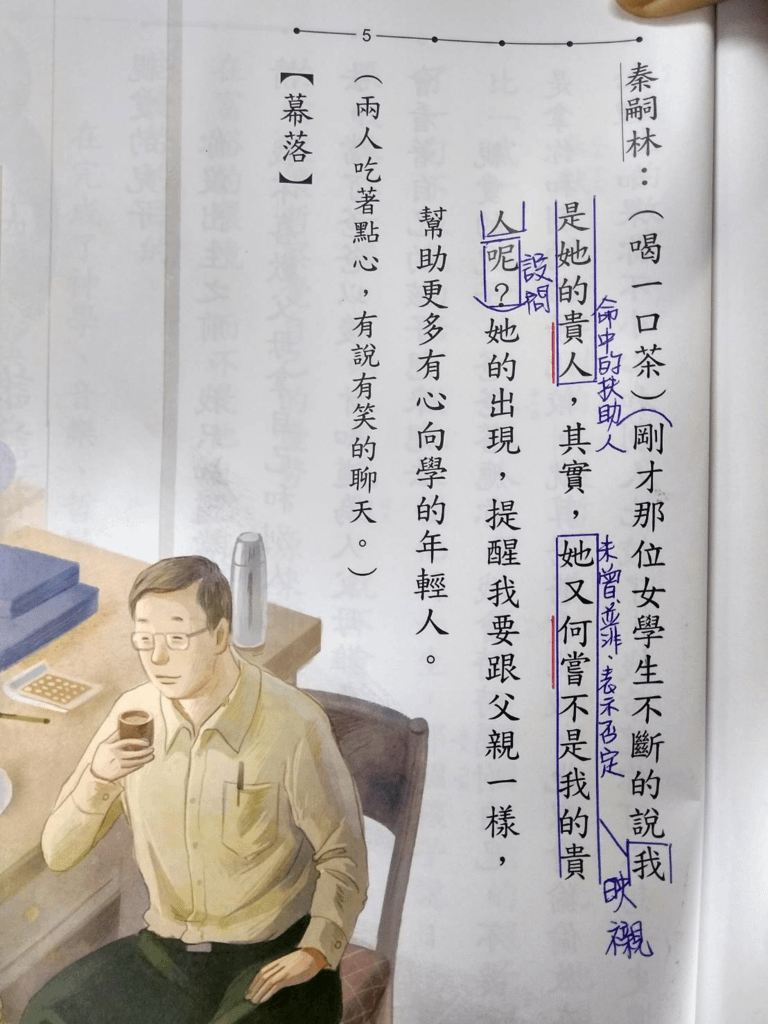 5
秦嗣林：（喝一口茶）剛才那位女學生不斷的說我
命中的扶助人
未曾、並非，表示否定
映襯
是她的貴人，其實，她又何嘗不是我的貴
設問
人呢？她的出現，提醒我要跟父親一樣，
幫助更多有心向學的年輕人。
（兩人吃著點心，有說有笑的聊天。）
【幕落】